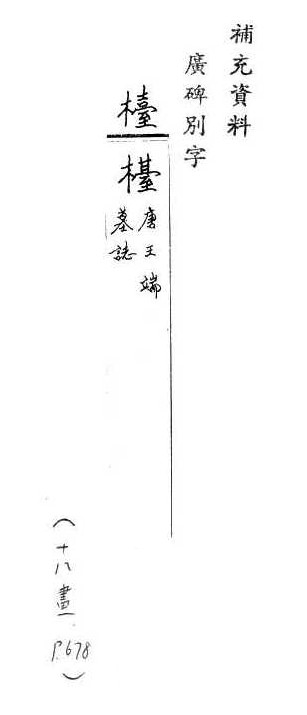 補充資料
廣碑別字
檯
唐王端
墓誌
(十八畫 P.678)